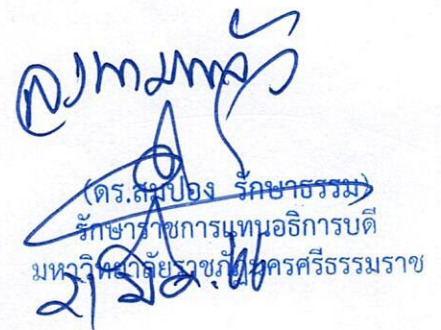 ลงนามแล้ว
(ดร.สมปอง รักษาธรรม)
รักษาราชการแทนอธิการบดี
มหาวิทยาลัยราชภัฏนครศรีธรรมราช